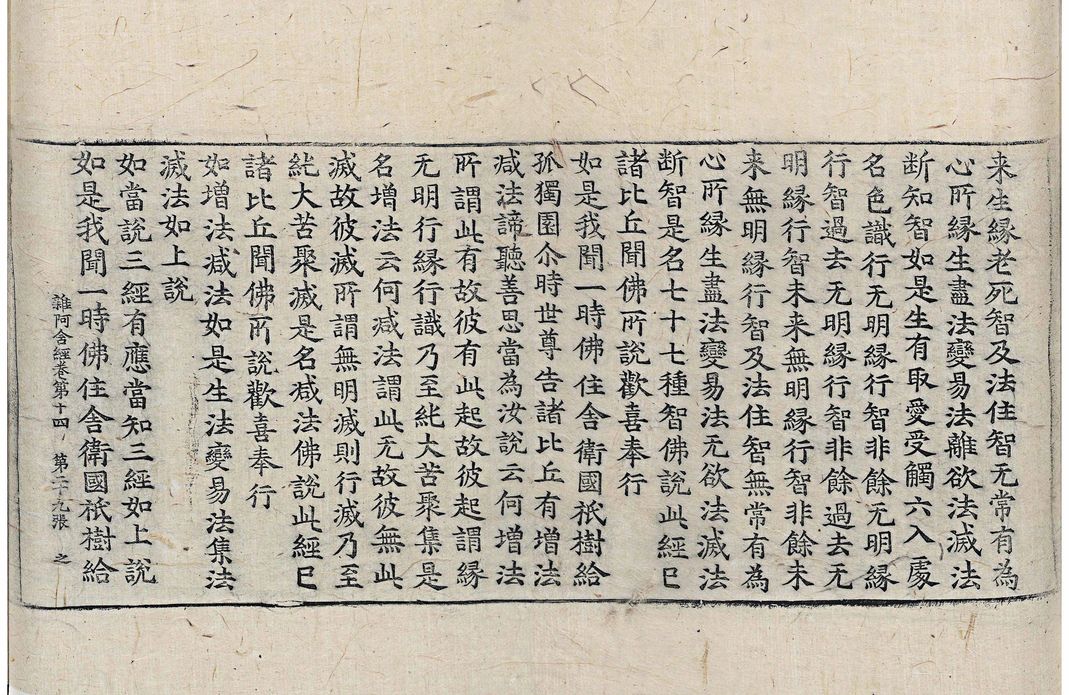 来生緣老死智及法住智无常有為
心所緣生盡法變易法離欲法滅法
断知智如是生有取愛受觸六入處
名色識行无明緣行智非餘无明緣
行智過去无明緣行智非餘過去无
明緣行智未来無明緣行智非餘未
来無明緣行智及法住智無常有為
心所緣生盡法變易法无欲法滅法
断智是名七十七種智佛說此經已
諸比丘聞佛所說歡喜奉行
如是我聞一時佛住舍衛國祇樹給
孤獨園尒時世尊告諸比丘有增法
减法諦聽善思當為汝說云何增法
所謂此有故彼有此起故彼起謂緣
无明行緣行識乃至純大苦聚集是
名增法云何减法謂此无故彼無此
滅故彼滅所謂無明滅則行滅乃至
純大苦聚滅是名减法佛說此經已
諸比丘聞佛所說歡喜奉行
如增法减法如是生法變易法集法
滅法如上說
如當說三經有應當知三經如上說
雜阿含經卷第十四 第二十九張 之
如是我聞一時佛住舍衛國祇樹給